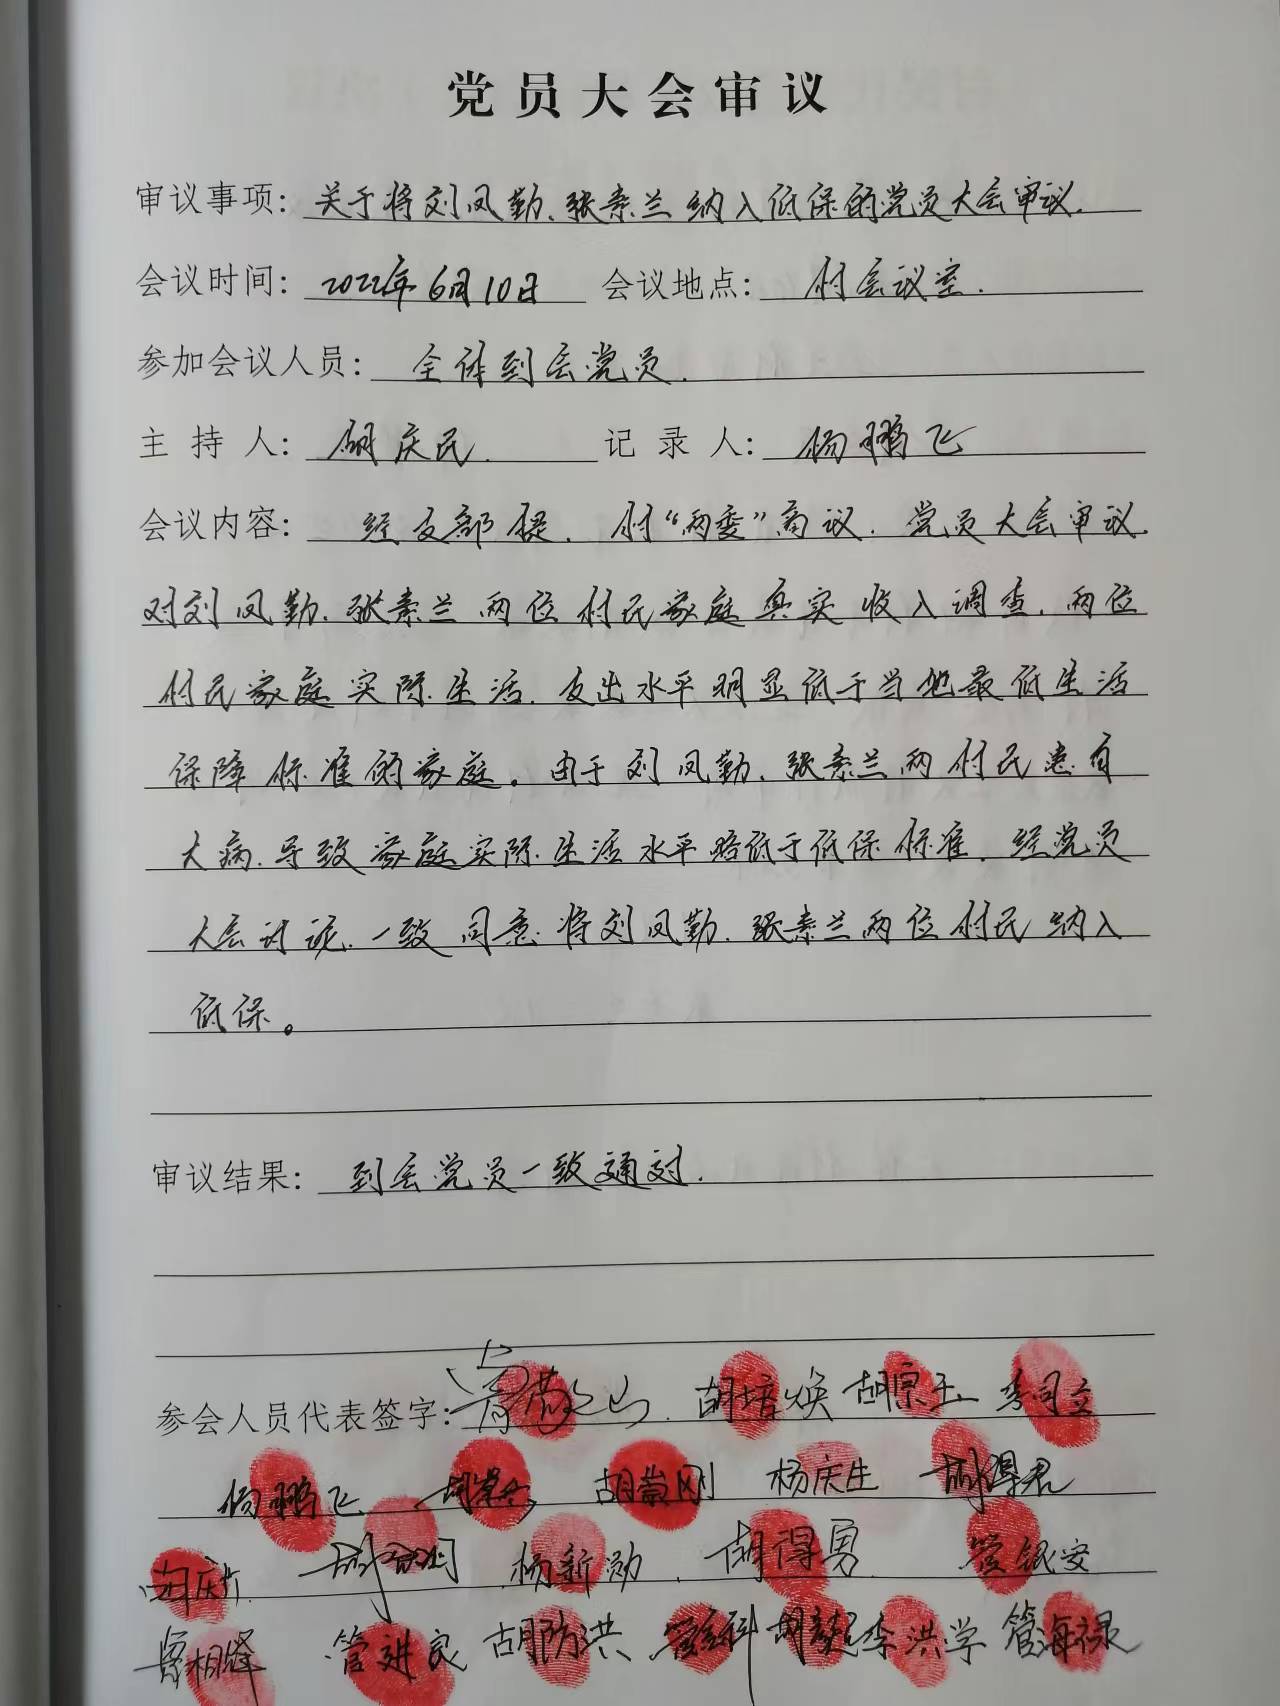 党员大会审议
审议事项: 关于将刘凤勤、张素兰纳入低保的党员大会审议.
会议时间: 2022年6月10日 会议地点: 村会议室.
参加会议人员: 全体到会党员.
主持人: 胡庆民. 记录人: 杨鹏飞
会议内容: 经支部提、村“两委”商议、党员大会审议.
对刘凤勤、张素兰两位村民家庭真实收入调查、两位
村民家庭实际生活、支出水平明显低于当地最低生活
保障标准的家庭。由于刘凤勤、张素兰两村民患有
大病、导致家庭实际生活水平略低于低保标准、经党员
大会讨论、一致同意将刘凤勤、张素兰两位村民纳入
低保。
审议结果: 到会党员一致通过.
参会人员代表签字: 胡培焕 胡宗玉 李司立
杨鹏飞 胡崇刚 杨庆生 胡得君
杨新勋 胡得勇 管银安
管进良 胡防洪 李洪学 管海禄